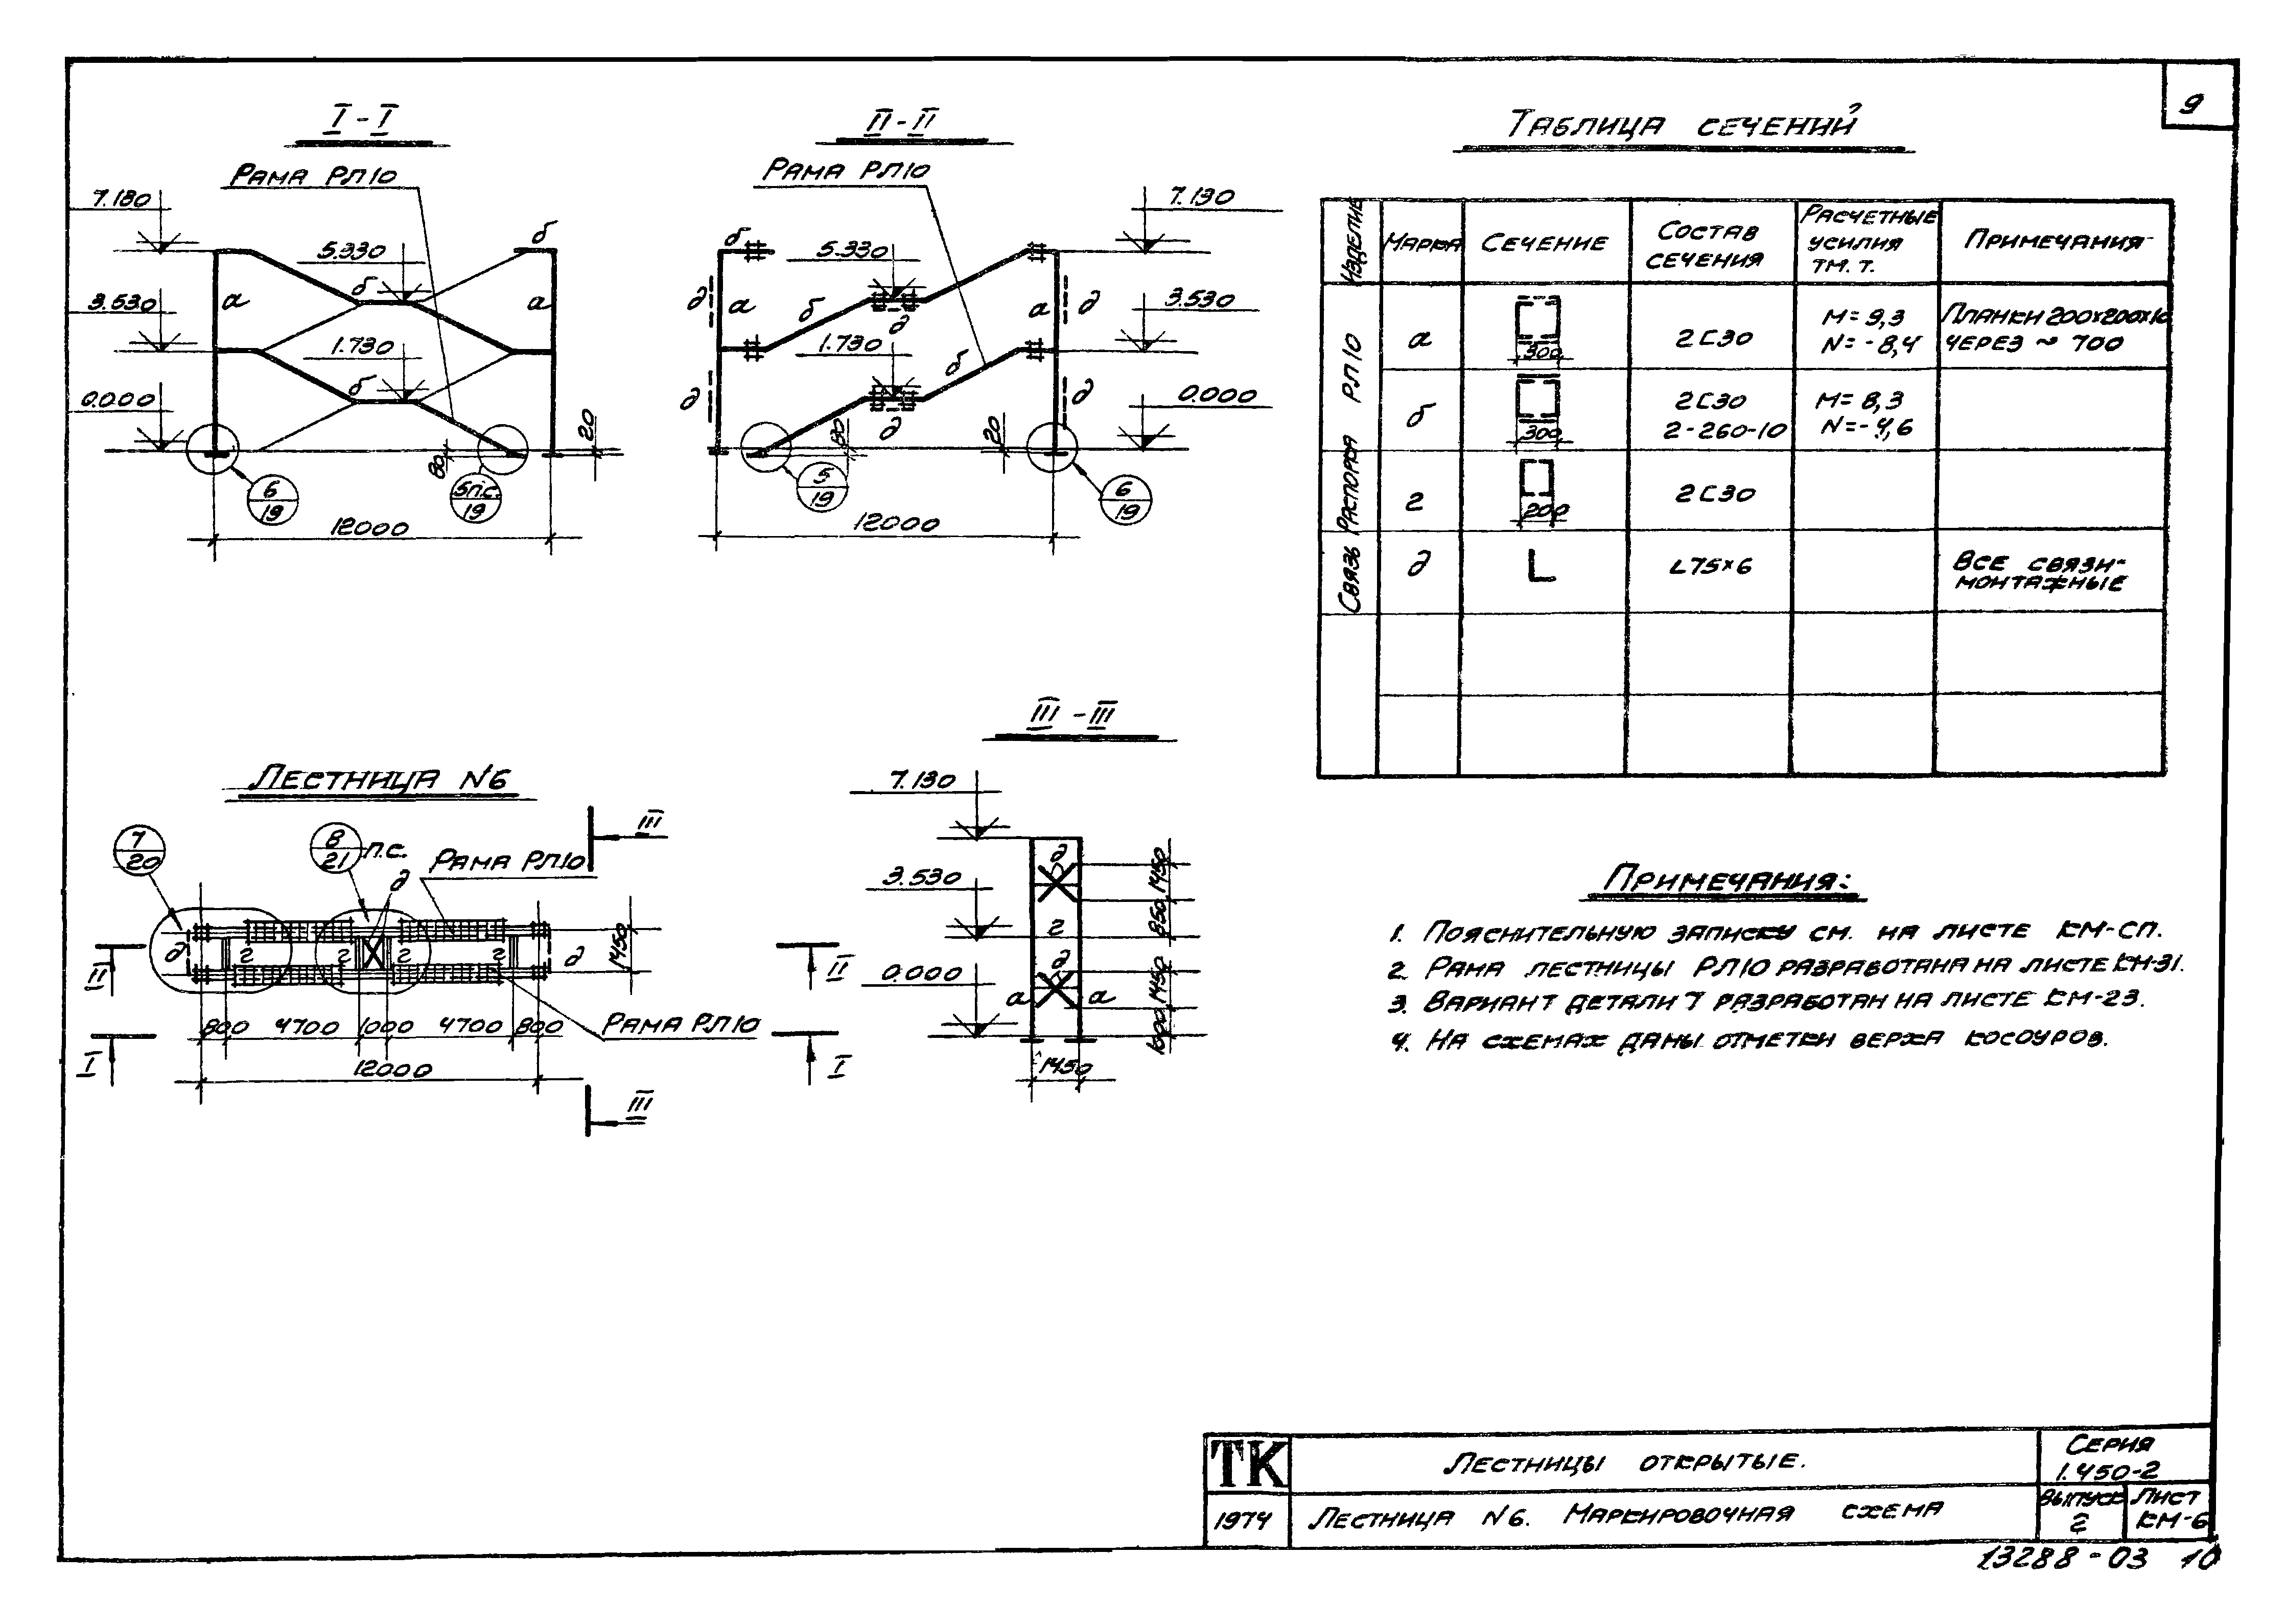 9
I - I
Рама РЛ10
7.130
5.930
б
б
3.530
а
а
1.730
б
0.000
20
80
6
19
5п.с.
19
12000
II - II
Рама РЛ10
7.130
б
5.330
д
а
б
д
а
д
3.530
1.730
б
д
д
д
0.000
80
20
5
19
6
19
12000
Таблица сечений
Изделие
Марка
Сечение
Состав
сечения
Расчетные
усилия
тм. т.
Примечания
РЛ10
а
300
2[30
M= 9,3
N= -8,4
Планки 200х200х10
через ~ 700
б
300
2[30
2-260-10
M= 8,3
N= -4,6
Распорка
г
200
2[30
Связь
д
L
L75×6
Все связи-
монтажные
Лестница N6
7
20
8
21
п.с.
д
Рама РЛ10
III
д
г
г
г
г
д
1450
II
II
800
4700
1000
4700
800
Рама РЛ10
I
I
12000
III
III - III
7.130
д
1450
3.530
850
г
д
0.000
1450
а
а
1000
1450
Примечания:
1. Пояснительную записку см. на листе КМ-СП.
2. Рама лестницы РЛ10 разработана на листе КМ-31.
3. Вариант детали 7 разработан на листе КМ-23.
4. На схемах даны отметки верха косоуров.
ТК
Лестницы открытые.
Серия
1.450-2
1974
Лестница N6. Маркировочная схема
Выпуск
2
Лист
КМ-6
13288-03 10